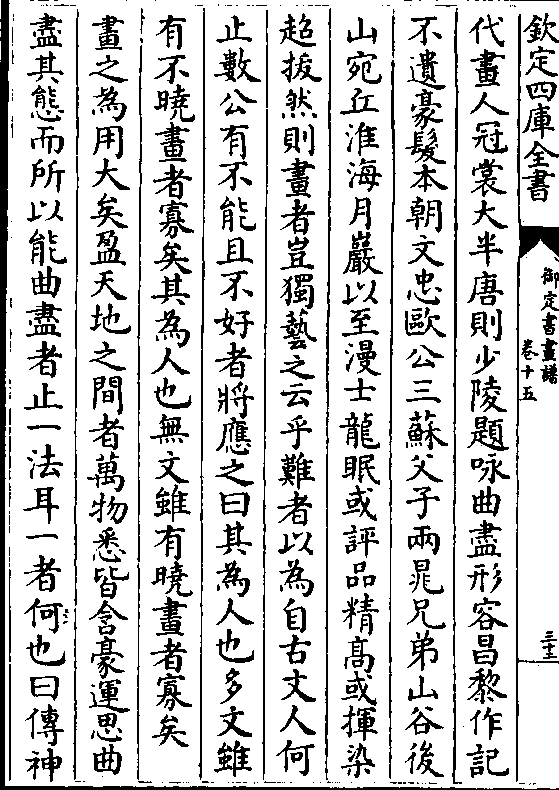 欽定四庫全書
御定書畫譜
卷十五
三十三
代畫人冠裳大半唐則少陵題咏曲盡形容昌黎作記
不遺豪髮本朝文忠歐公三蘇父子兩晁兄弟山谷後
山宛丘淮海月巖以至漫士龍眠或評品精高或揮染
超拔然則畫者豈獨藝之云乎難者以為自古文人何
止數公有不能且不好者將應之曰其為人也多文雖
有不曉畫者寡矣其為人也無文雖有曉畫者寡矣
畫之為用大矣盈天地之間者萬物悉皆含豪運思曲
盡其態而所以能曲盡者止一法耳一者何也曰傳神